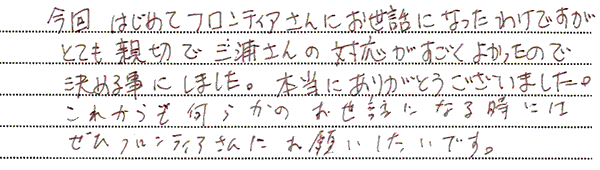 今回 はじめてフロンティアさんにお世話になったわけですが
とても親切で三浦さんの対応がすごくよかったので
決める事にしました。本当にありがとうございました。
これからも何らかのお世話になる時には
ぜひフロンティアさんにお願いしたいです。